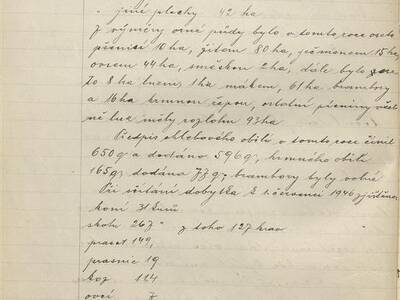 " jiné plochy 42 ha
Z výměry orné půdy bylo v tomto roce oseto
pšenicí 10 ha, žitem 80 ha, ječmenem 15 ha,
ovsem 44 ha, směskou 2 ha, dále bylo
to 8 ha lnem, 1 ha mákem, 61 ha brambory
a 16 ha krmnou řepou, ostatní pícniny
né luk měly rozlohu 93 ha
Předpis chlebového obilí v tomto roce činil
650 q a dodáno 596 q, krmného obilí
165 q, dodáno 77 q, brambory byly volné
Při sčítání dobytka k 1. červenci 1946 zjištěno
koní 31 kusů
skotu 267 " z toho 127 krav
prasat 149,
prasnic 19
koz 114
ovcí 7